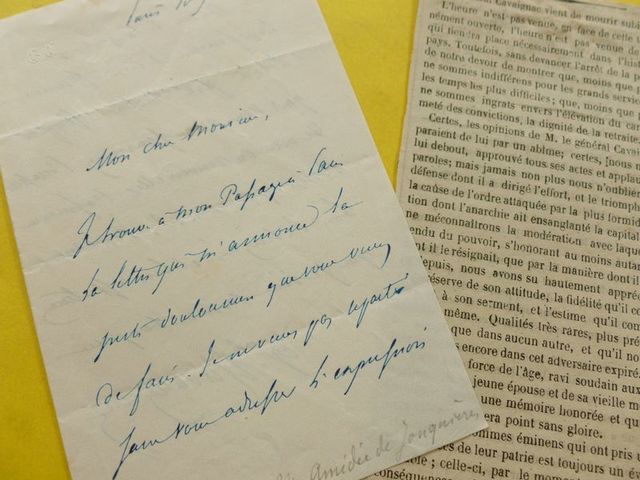 Paris
Mon cher Monsieur,
Je trouve à mon Passage à Paris
la lettre qui m'annonce la
perte douloureuse que vous venez
de faire. Je ne veux pas repartir
sans vous adresser l'expression
Amédée de Jonquières
Cavaignac vient de mourir subi
L'heure n'est pas venue, en face de cette
nément ouverte, l'heure n'est pas venue de
qui tiendra place nécessairement dans l'his
pays. Toutefois, sans devancer l'arrêt de la
de notre devoir de montrer que, moins que p
ne sommes indifférens pour les grands serv
les temps les plus difficiles; que, moins que p
ne sommes ingrats envers l'élévation du ca
meté des convictions, la dignité de la retraite.
Certes, les opinions de M. le général Cavai
paraient de lui par un abîme; certes, nous
lui debout, approuvé tous ses actes et applau
paroles; mais jamais non plus nous n'oublie
défense dont il a dirigé l'effort, et le triomph
la cause de l'ordre attaquée par la plus formid
tion dont l'anarchie ait ensanglanté la capital
ne méconnaîtrons la modération avec laque
endu du pouvoir, s'honorant au moins autan
nt il le résignait, que par la manière dont il
depuis, nous avons su hautement appré
réserve de son attitude, la fidélité qu'il co
à son serment, et l'estime qu'il con
même. Qualités très rares, plus pré
que dans aucun autre, et qu'il no
encore dans cet adversaire expiré.
force de l'Age, ravi soudain aux
jeune épouse et de sa vieille m
une mémoire honorée et qu
era point sans gloire.
ommes éminens qui ont pris
es de leur patrie est toujours un év
ble; celle-ci, par le moment
conséquences